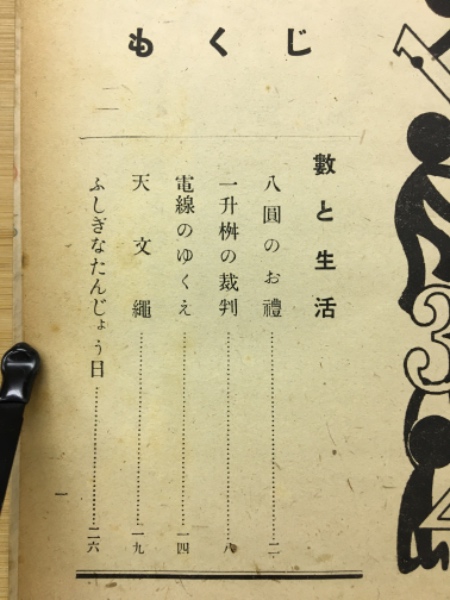 もくじ
數と生活
八圓のお禮……二
一升桝の裁判……八
電線のゆくえ……一四
天文繩……一九
ふしぎなたんじょう日……二六
一
1
3